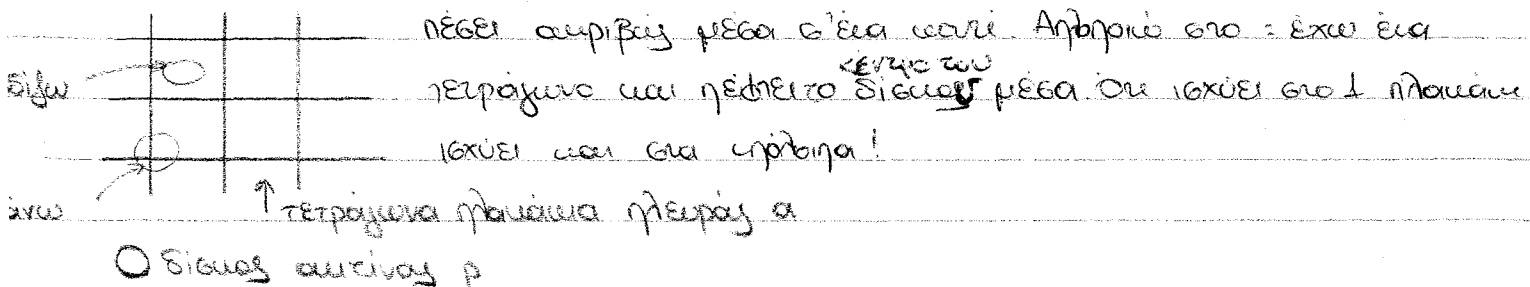 πέσει ακριβώς μέσα σ'ένα κουτί. Απλοποιώ στο: έχω ένα
δίζω
τετράγωνο και πέφτει το κέντρο του δίσκου μέσα. Ότι ισχύει στο 1 πλακάκι
ισχύει και στα υπόλοιπα!
άνω
τετράγωνα πλακάκια πλευράς α
δίσκος ακτίνας ρ